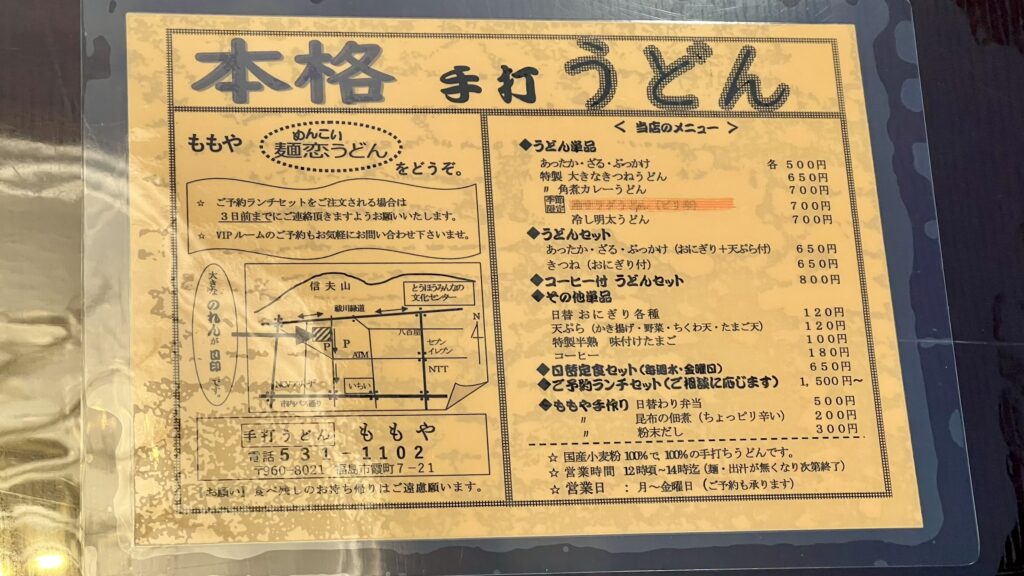 本格 手打 うどん
ももや
めんこい
麺恋うどん
をどうぞ。
☆ ご予約ランチセットをご注文される場合は
3日前までにご連絡頂きますようお願いいたします。
☆ VIPルームのご予約もお気軽にお問い合わせ下さいませ。
大きな のれんが 目印 です。
信夫山
とうほうみんなの
文化センター
祓川緑道
八百屋
N
P P
ATM
セブン
イレブン
NTT
いちい
市内バス通り
手打うどん ももや
電話 531-1102
〒960-8021 福島市霞町7-21
【お願い】食べ残しのお持ち帰りはご遠慮願います。
< 当店のメニュー >
◆うどん単品
あったか・ざる・ぶっかけ 各 500円
特製 大きなきつねうどん 650円
〃 角煮カレーうどん 700円
季節限定 700円
冷し明太うどん 700円
◆うどんセット
あったか・ざる・ぶっかけ(おにぎり+天ぷら付) 650円
きつね(おにぎり付) 650円
◆コーヒー付 うどんセット 800円
◆その他単品
日替 おにぎり各種 120円
天ぷら(かき揚げ・野菜・ちくわ天・たまご天) 120円
特製半熟 味付けたまご 100円
コーヒー 180円
◆日替定食セット(毎週水・金曜日) 650円
◆ご予約ランチセット(ご相談に応じます) 1,500円~
◆ももや手作り 日替わり弁当 500円
〃 昆布の佃煮(ちょっピリ辛い) 200円
〃 粉末だし 300円
☆ 国産小麦粉100%で100%の手打ちうどんです。
☆ 営業時間 12時頃~14時迄(麺・出汁が無くなり次第終了)
☆ 営業日 : 月~金曜日(ご予約も承ります)